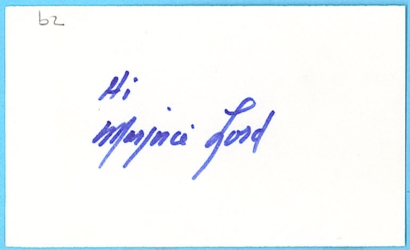 62
Hi
Marjorie Lord